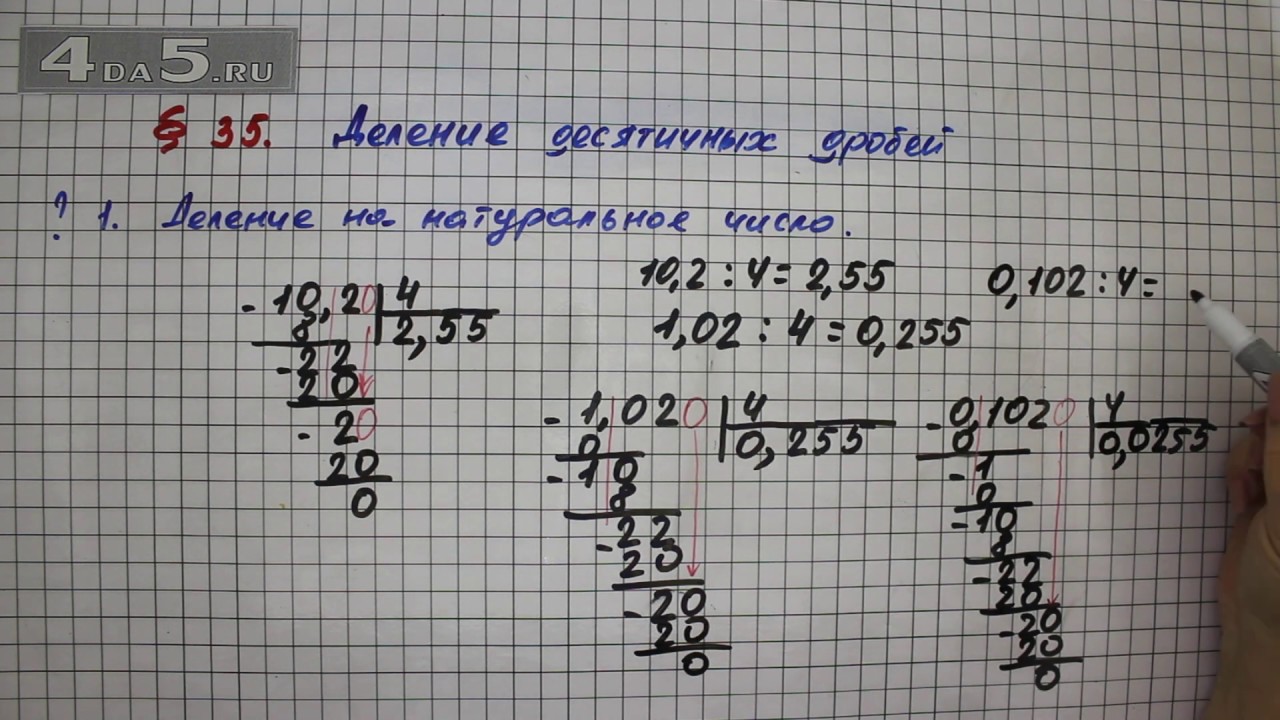 4DA5.RU
§ 35. Деление десятичных дробей
? 1. Деление на натуральное число.
10,2 : 4 = 2,55
0,102 : 4 =
1,02 : 4 = 0,255
- 10,20 4
8 2,55
- 22
20
- 20
20
0
- 1,020 4
0 0,255
- 10
8
- 22
20
- 20
20
0
- 0,1020 4
0 0,0255
- 1
0
- 10
8
- 22
20
- 20
20
0